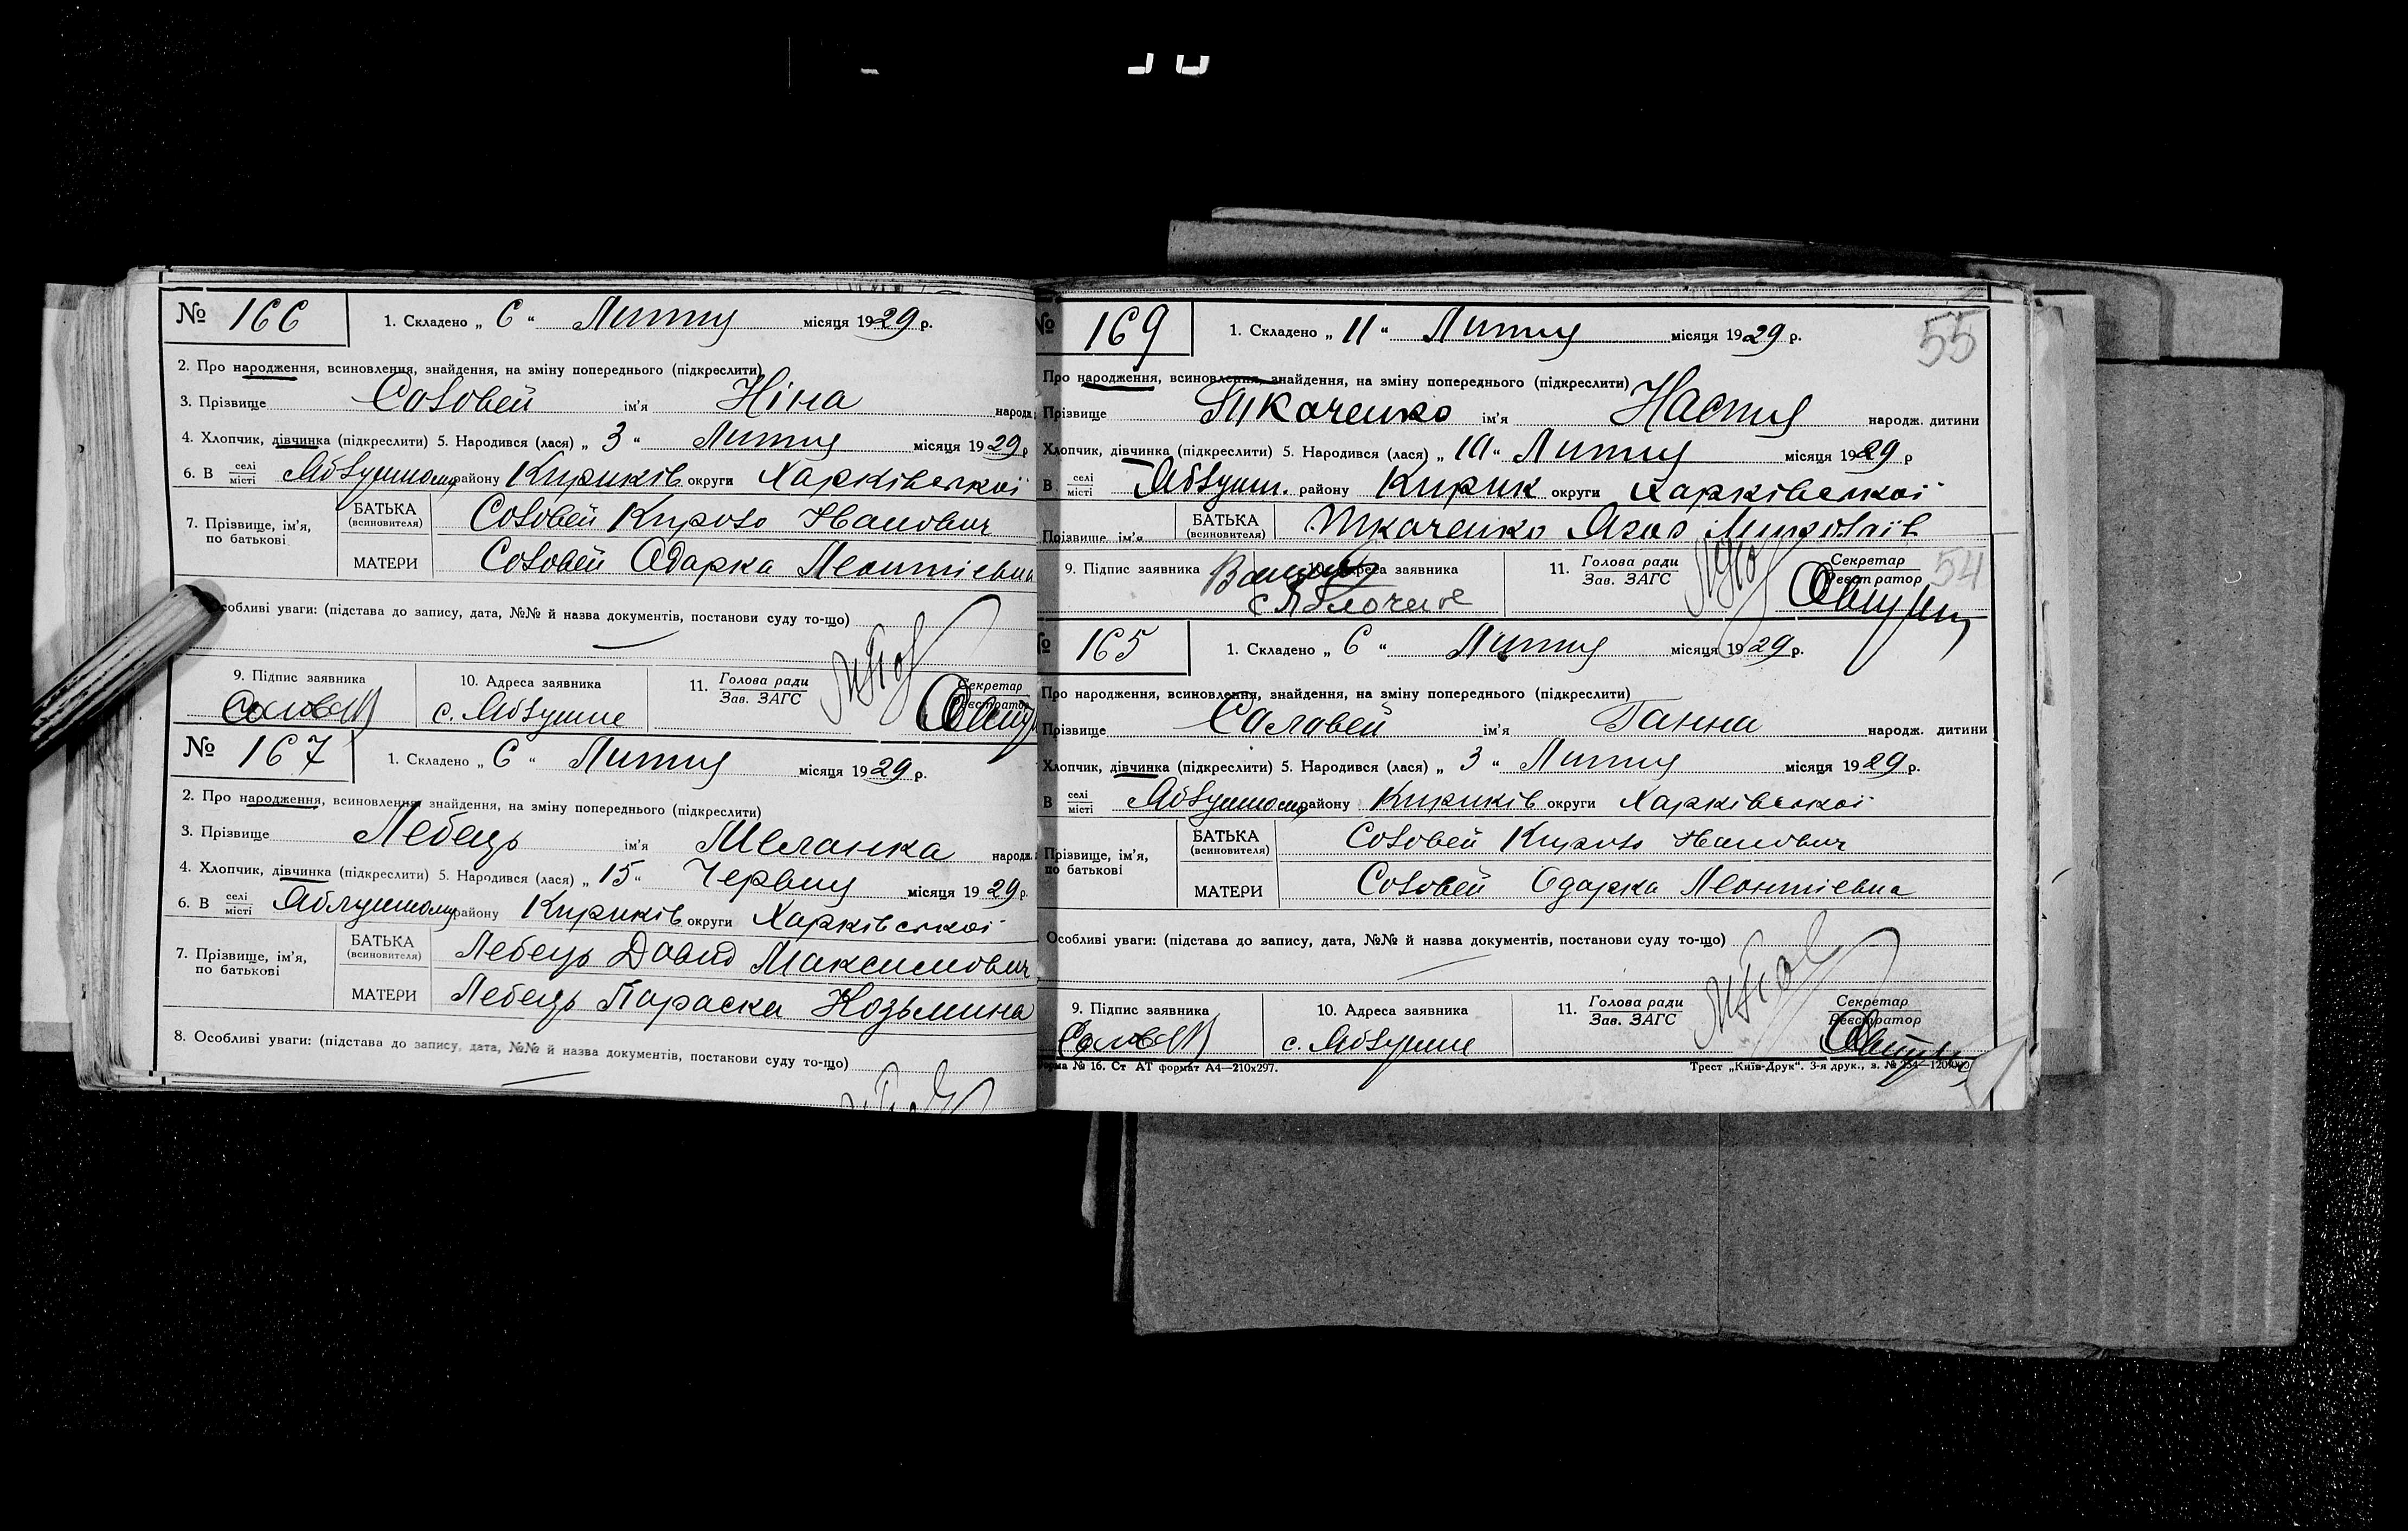 № 166 1. Складено „ 6 “ Липня місяця 1929 р.
2. Про народження, всиновлення, знайдення, на зміну попереднього (підкреслити)
3. Прізвище Соловей ім'я Ніна народж.
4. Хлопчик, дівчинка (підкреслити) 5. Народився (лася) „ 3 “ Липня місяця 1929 р
6. В селі місті Яблушному району Кириків округи Харківської
7. Прізвище, ім'я, по батькові БАТЬКА (всиновителя) Соловей Кирило Іванович
МАТЕРИ Соловей Одарка Леонтіевна
Особливі уваги: (підстава до запису, дата, №№ й назва документів, постанови суду то-що)
9. Підпис заявника 10. Адреса заявника 11. Голова ради Зав. ЗАГС Секретар Реєстратор
Соловей с. Яблушне
№ 167 1. Складено „ 6 “ Липня місяця 1929 р.
2. Про народження, всиновлення, знайдення, на зміну попереднього (підкреслити)
3. Прізвище Лебець ім'я Меланка народж.
4. Хлопчик, дівчинка (підкреслити) 5. Народився (лася) „ 15 “ Червня місяця 1929 р.
6. В селі місті Яблушному району Кириків округи Харківської
7. Прізвище, ім'я, по батькові БАТЬКА (всиновителя) Лебець Давид Максимович
МАТЕРИ Лебець Параска Козьмина
8. Особливі уваги: (підстава до запису, дата, №№ й назва документів, постанови суду то-що)
55
№ 169 1. Складено „ 11 “ Липня місяця 1929 р.
Про народження, всиновлення, знайдення, на зміну попереднього (підкреслити)
Прізвище Ткаченко ім'я Настя народж. дитини
Хлопчик, дівчинка (підкреслити) 5. Народився (лася) „ 10 “ Липня місяця 1929 р
В селі місті Яблушн. району Кирик округи Харківської
Прізвище ім'я БАТЬКА (всиновителя) Ткаченко Миколаїв
9. Підпис заявника 10. Адреса заявника 11. Голова ради Зав. ЗАГС Секретар Реєстратор 54
с Яблочное
№ 165 1. Складено „ 6 “ Липня місяця 1929 р.
Про народження, всиновлення, знайдення, на зміну попереднього (підкреслити)
Прізвище Саловей ім'я Ганна народж. дитини
Хлопчик, дівчинка (підкреслити) 5. Народився (лася) „ 3 “ Липня місяця 1929 р.
В селі місті Яблушному району Кириків округи Харківської
Прізвище, ім'я, по батькові БАТЬКА (всиновителя) Соловей Кирило Іванович
МАТЕРИ Соловей Одарка Леонтіевна
Особливі уваги: (підстава до запису, дата, №№ й назва документів, постанови суду то-що)
9. Підпис заявника 10. Адреса заявника 11. Голова ради Зав. ЗАГС Секретар Реєстратор
Соловей с. Яблушне
Форма № 16. Ст АТ формат А4—210х297. Трест „Київ-Друк“. 3-я друк., з. №